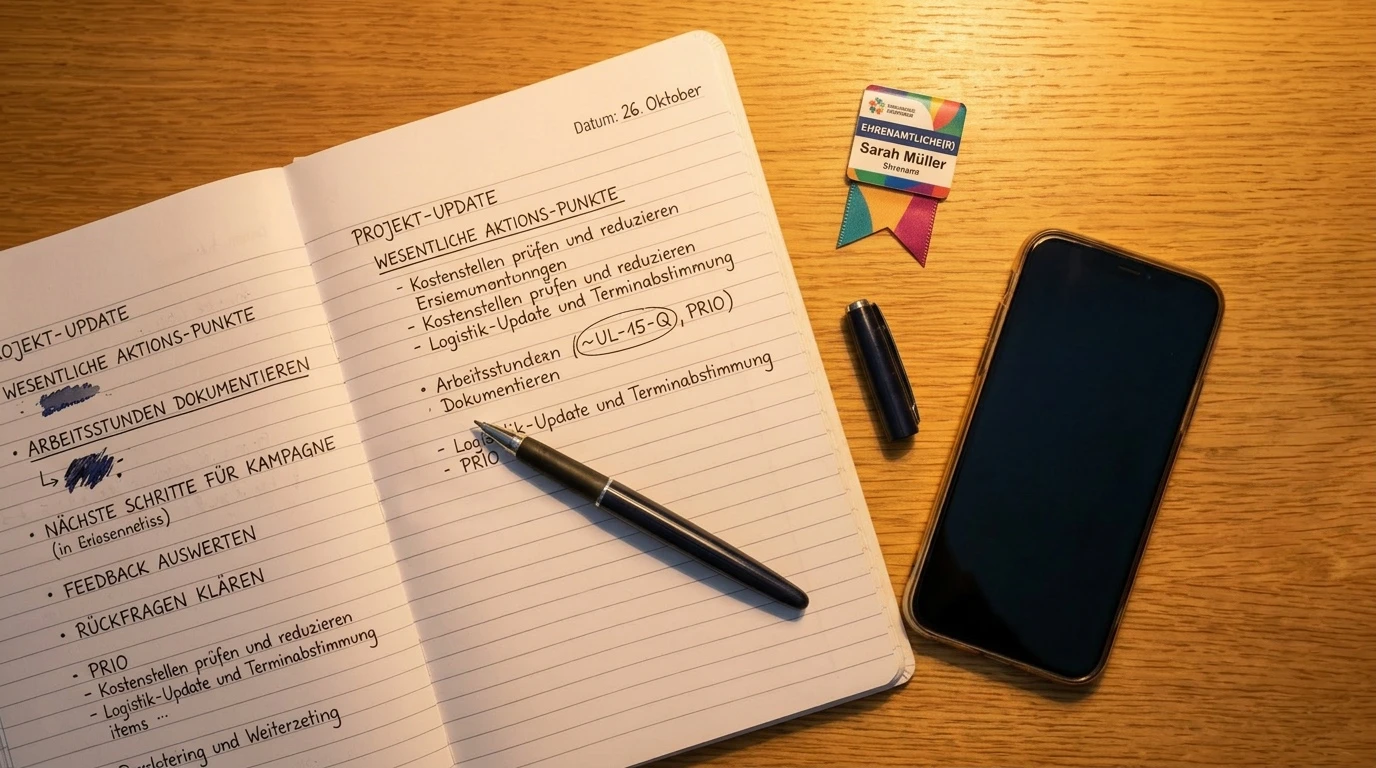 PROJEKT-UPDATE
WESENTLICHE AKTIONS-PUNKTE
• ARBEITSSTUNDEN DOKUMENTIEREN
• NÄCHSTE SCHRITTE FÜR KAMPAGNE
(in Eriosennetiss)
• FEEDBACK AUSWERTEN
• RÜCKFRAGEN KLÄREN
- PRIO
- Kostenstellen prüfen und reduzieren
- Logistik-Update und Terminabstimmung
items ...
und Weiterzeting
Datum: 26. Oktober
PROJEKT-UPDATE
WESENTLICHE AKTIONS-PUNKTE
- Kostenstellen prüfen und reduzieren
Ersiemunontonngen
- Kostenstellen prüfen und reduzieren
- Logistik-Update und Terminabstimmung
• Arbeitsstundern (~UL-15-Q, PRIO)
Dokumentieren
- Logistik-Update und Terminabstimmung
- PRIO
EHRENAMTLICHE(R)
Sarah Müller
Shrename